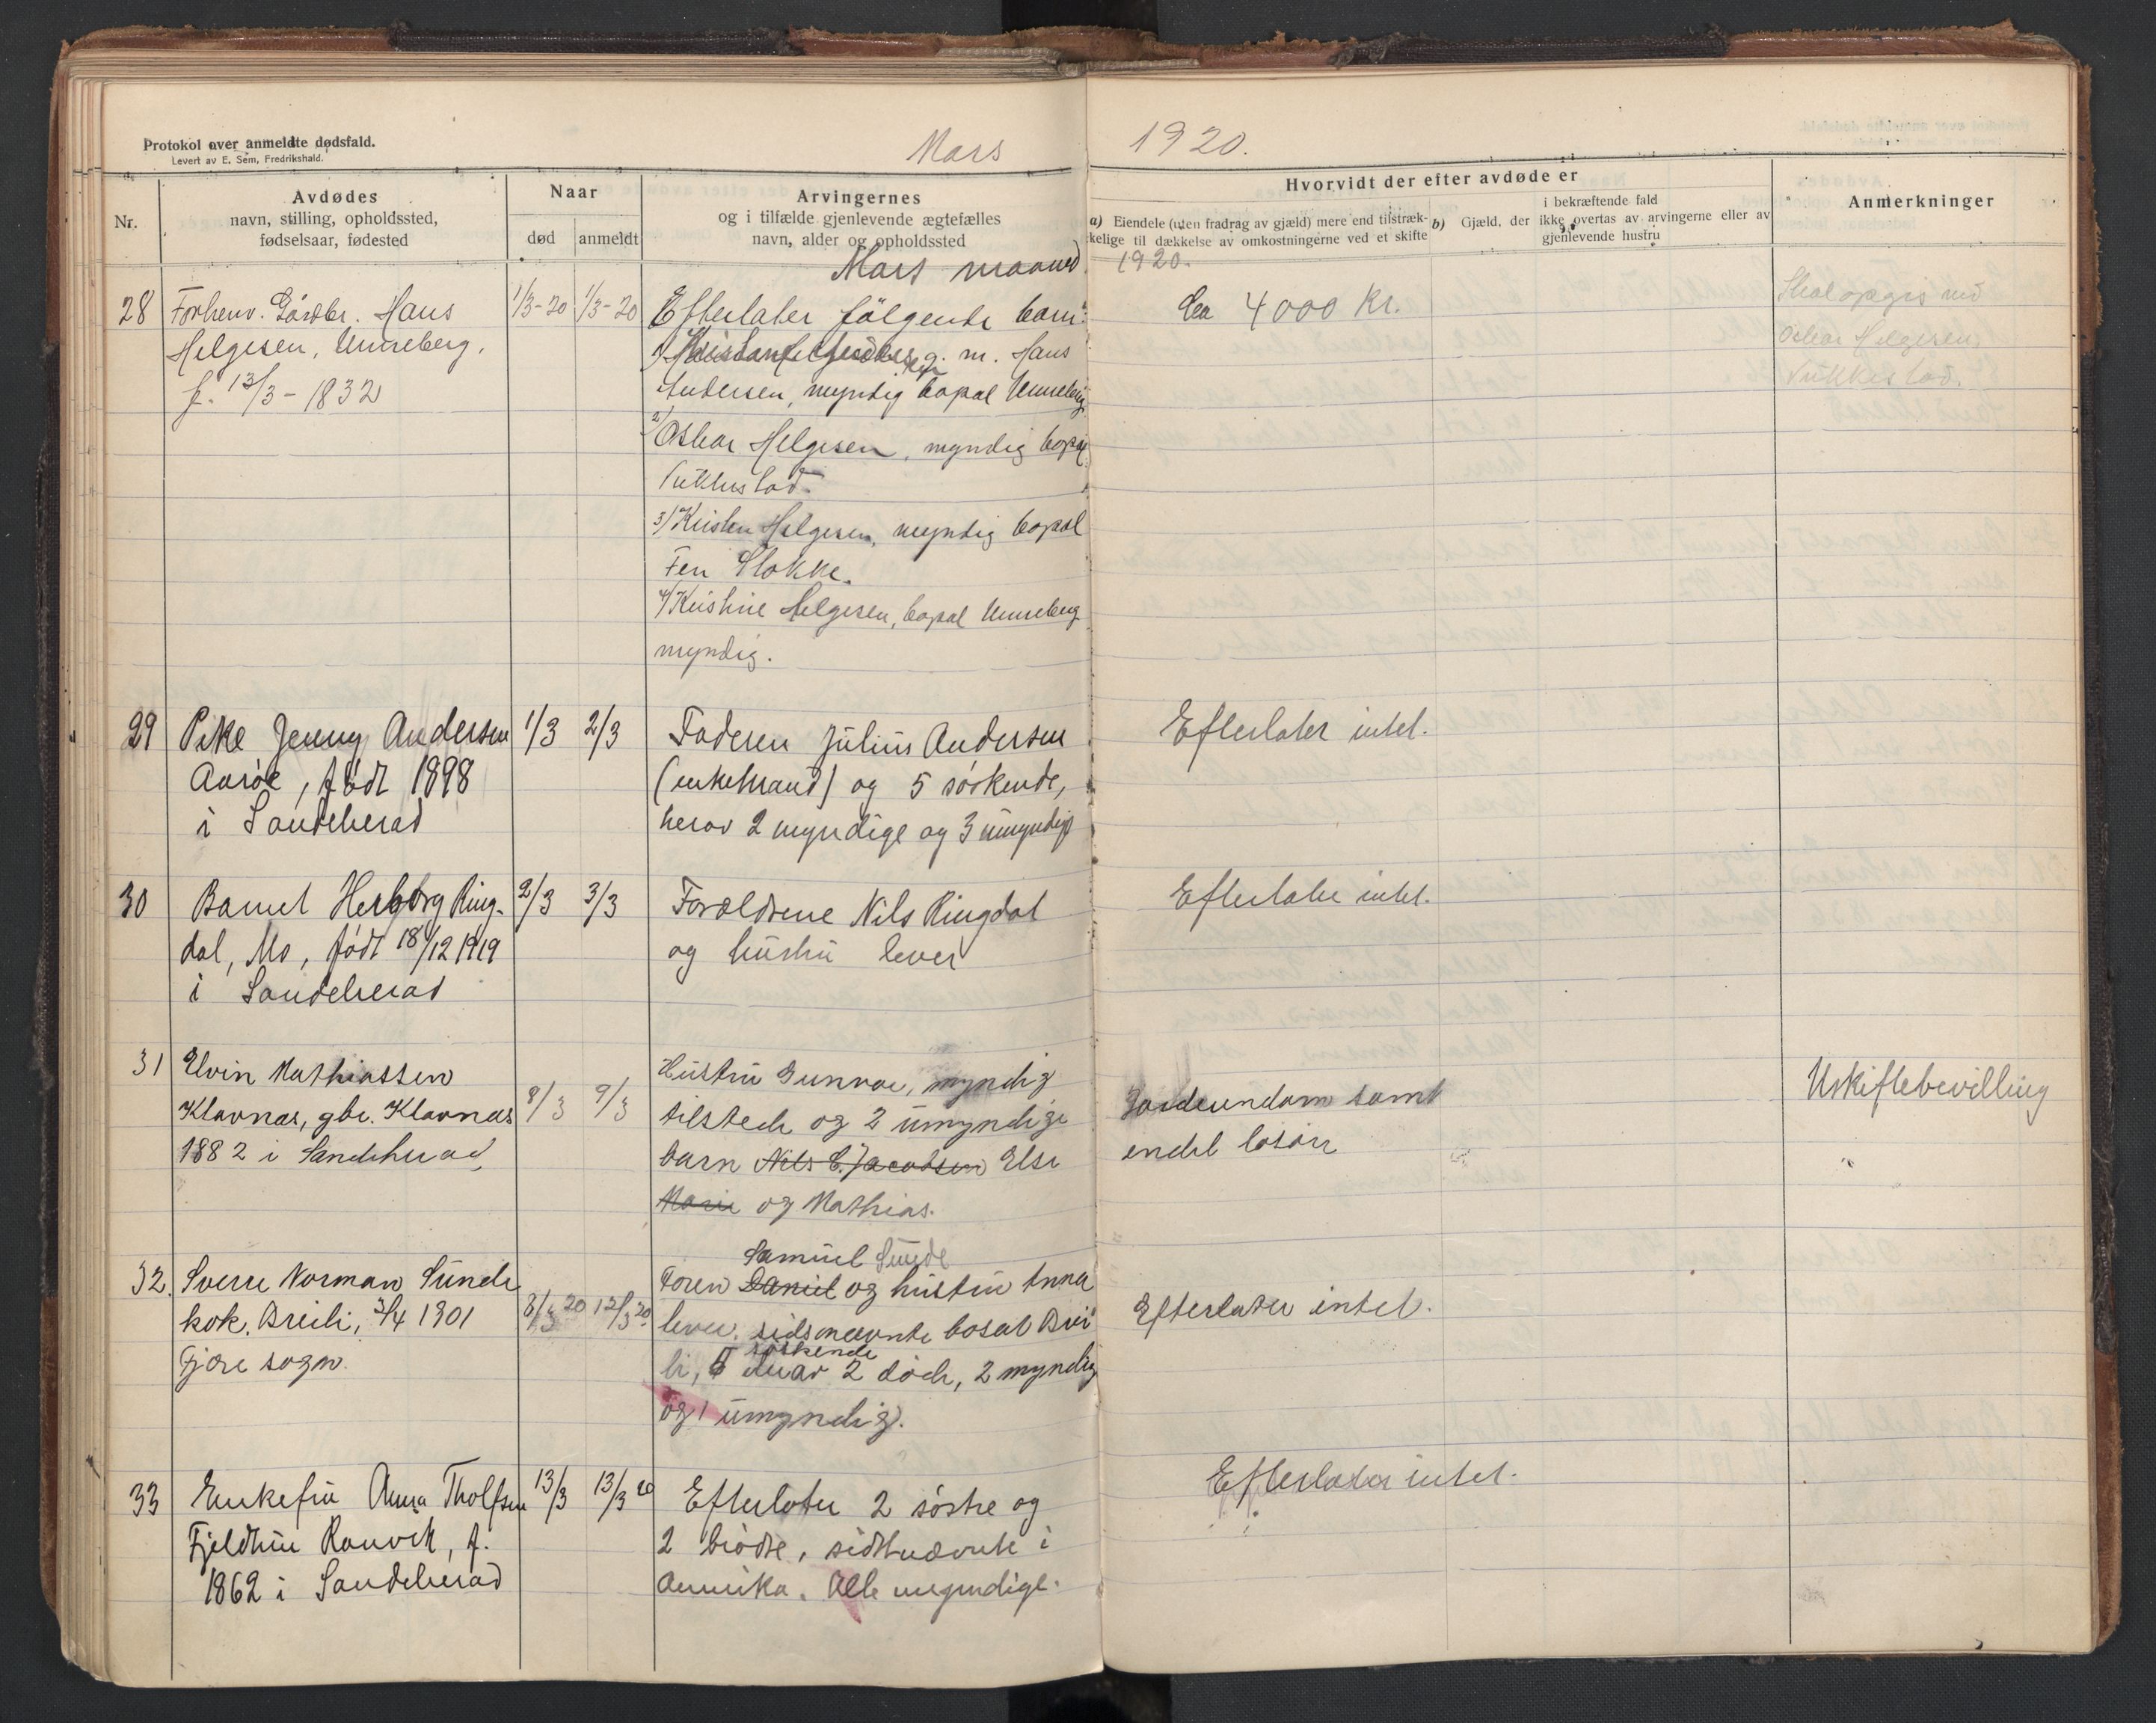 Protokol over anmeldte dødsfald.
Levert av E. Sem, Fredrikshald.
Mars 1920.
Nr.
Avdødes
navn, stilling, opholdssted,
fødselsaar, fødested
Naar
død
anmeldt
Arvingernes
og i tilfælde gjenlevende ægtefælles
navn, alder og opholdssted
Hvorvidt der efter avdøde er
a) Eiendele (uten fradrag av gjæld) mere end tilstræk-
kelige til dækkelse av omkostningerne ved et skifte
b) Gjæld, der
i bekræftende fald
ikke overtas av arvingerne eller av
gjenlevende hustru
Anmerkninger
Mars maaned 1920.
28
Forhenv. Gårdbr. Hans
Helgesen, Unneberg,
f. 13/3 - 1832
1/3-20
1/3-20
Efterlater følgende barn:
g. m. Hans
Andersen, myndig bopæl Unneberg
2/ Oskar Helgesen, myndig bopæl
3/ Kristen Helgesen, myndig bopæl
Fen Stokke.
4/ Kristine Helgesen, bopæl Unneberg
myndig.
Ca 4000 Kr.
Skal opgis ved
Oskar Helgesen,
29
Pike Jenny Andersen
Aarøe, født 1898
i Sandeherad
1/3
2/3
Faderen Julius Andersen
(enkemand) og 5 søskende,
herav 2 myndige og 3 umyndige
Efterlater intet.
30
Barnet Herborg Ring-
dal, Mo, født 18/12 1919
i Sandeherad
2/3
3/3
Forældrene Nils Ringdal
og hustru lever
Efterlater intet.
31
Elvin Mathiassen
Klavnæs, gbr. Klavnæs
1882 i Sandeherad
8/3
9/3
Hustru Gunvor, myndig
tilstede og 2 umyndige
barn Nils C. Jacobsen Else
Marie og Mathias.
Gardeiendom samt
endel løsøre
Uskiftebevilling
32.
Sverre Norman Sunde
kok. Breili, 3/4 1901
Fjære sogn.
8/3 20
12/3 20.
Samuel Sunde
Faren Daniel og hustru Anna
lever. sidsnævnte bosat Brei
søskende
li, 5 hvav 2 døde, 2 myndig
og 1 umyndig.
Efterlater intet.
33
Enkefru Anna Tholfsen
Fjeldhue Ranvik, f.
1862 i Sandeherad
13/3
13/3 20
Efterlater 2 søstre og
2 brødre, sidstnævnte i
Amerika. Alle myndige.
Efterlater intet.